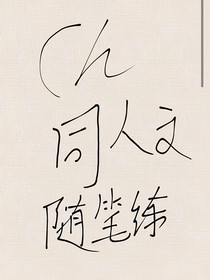 Ch
同人文
随笔练